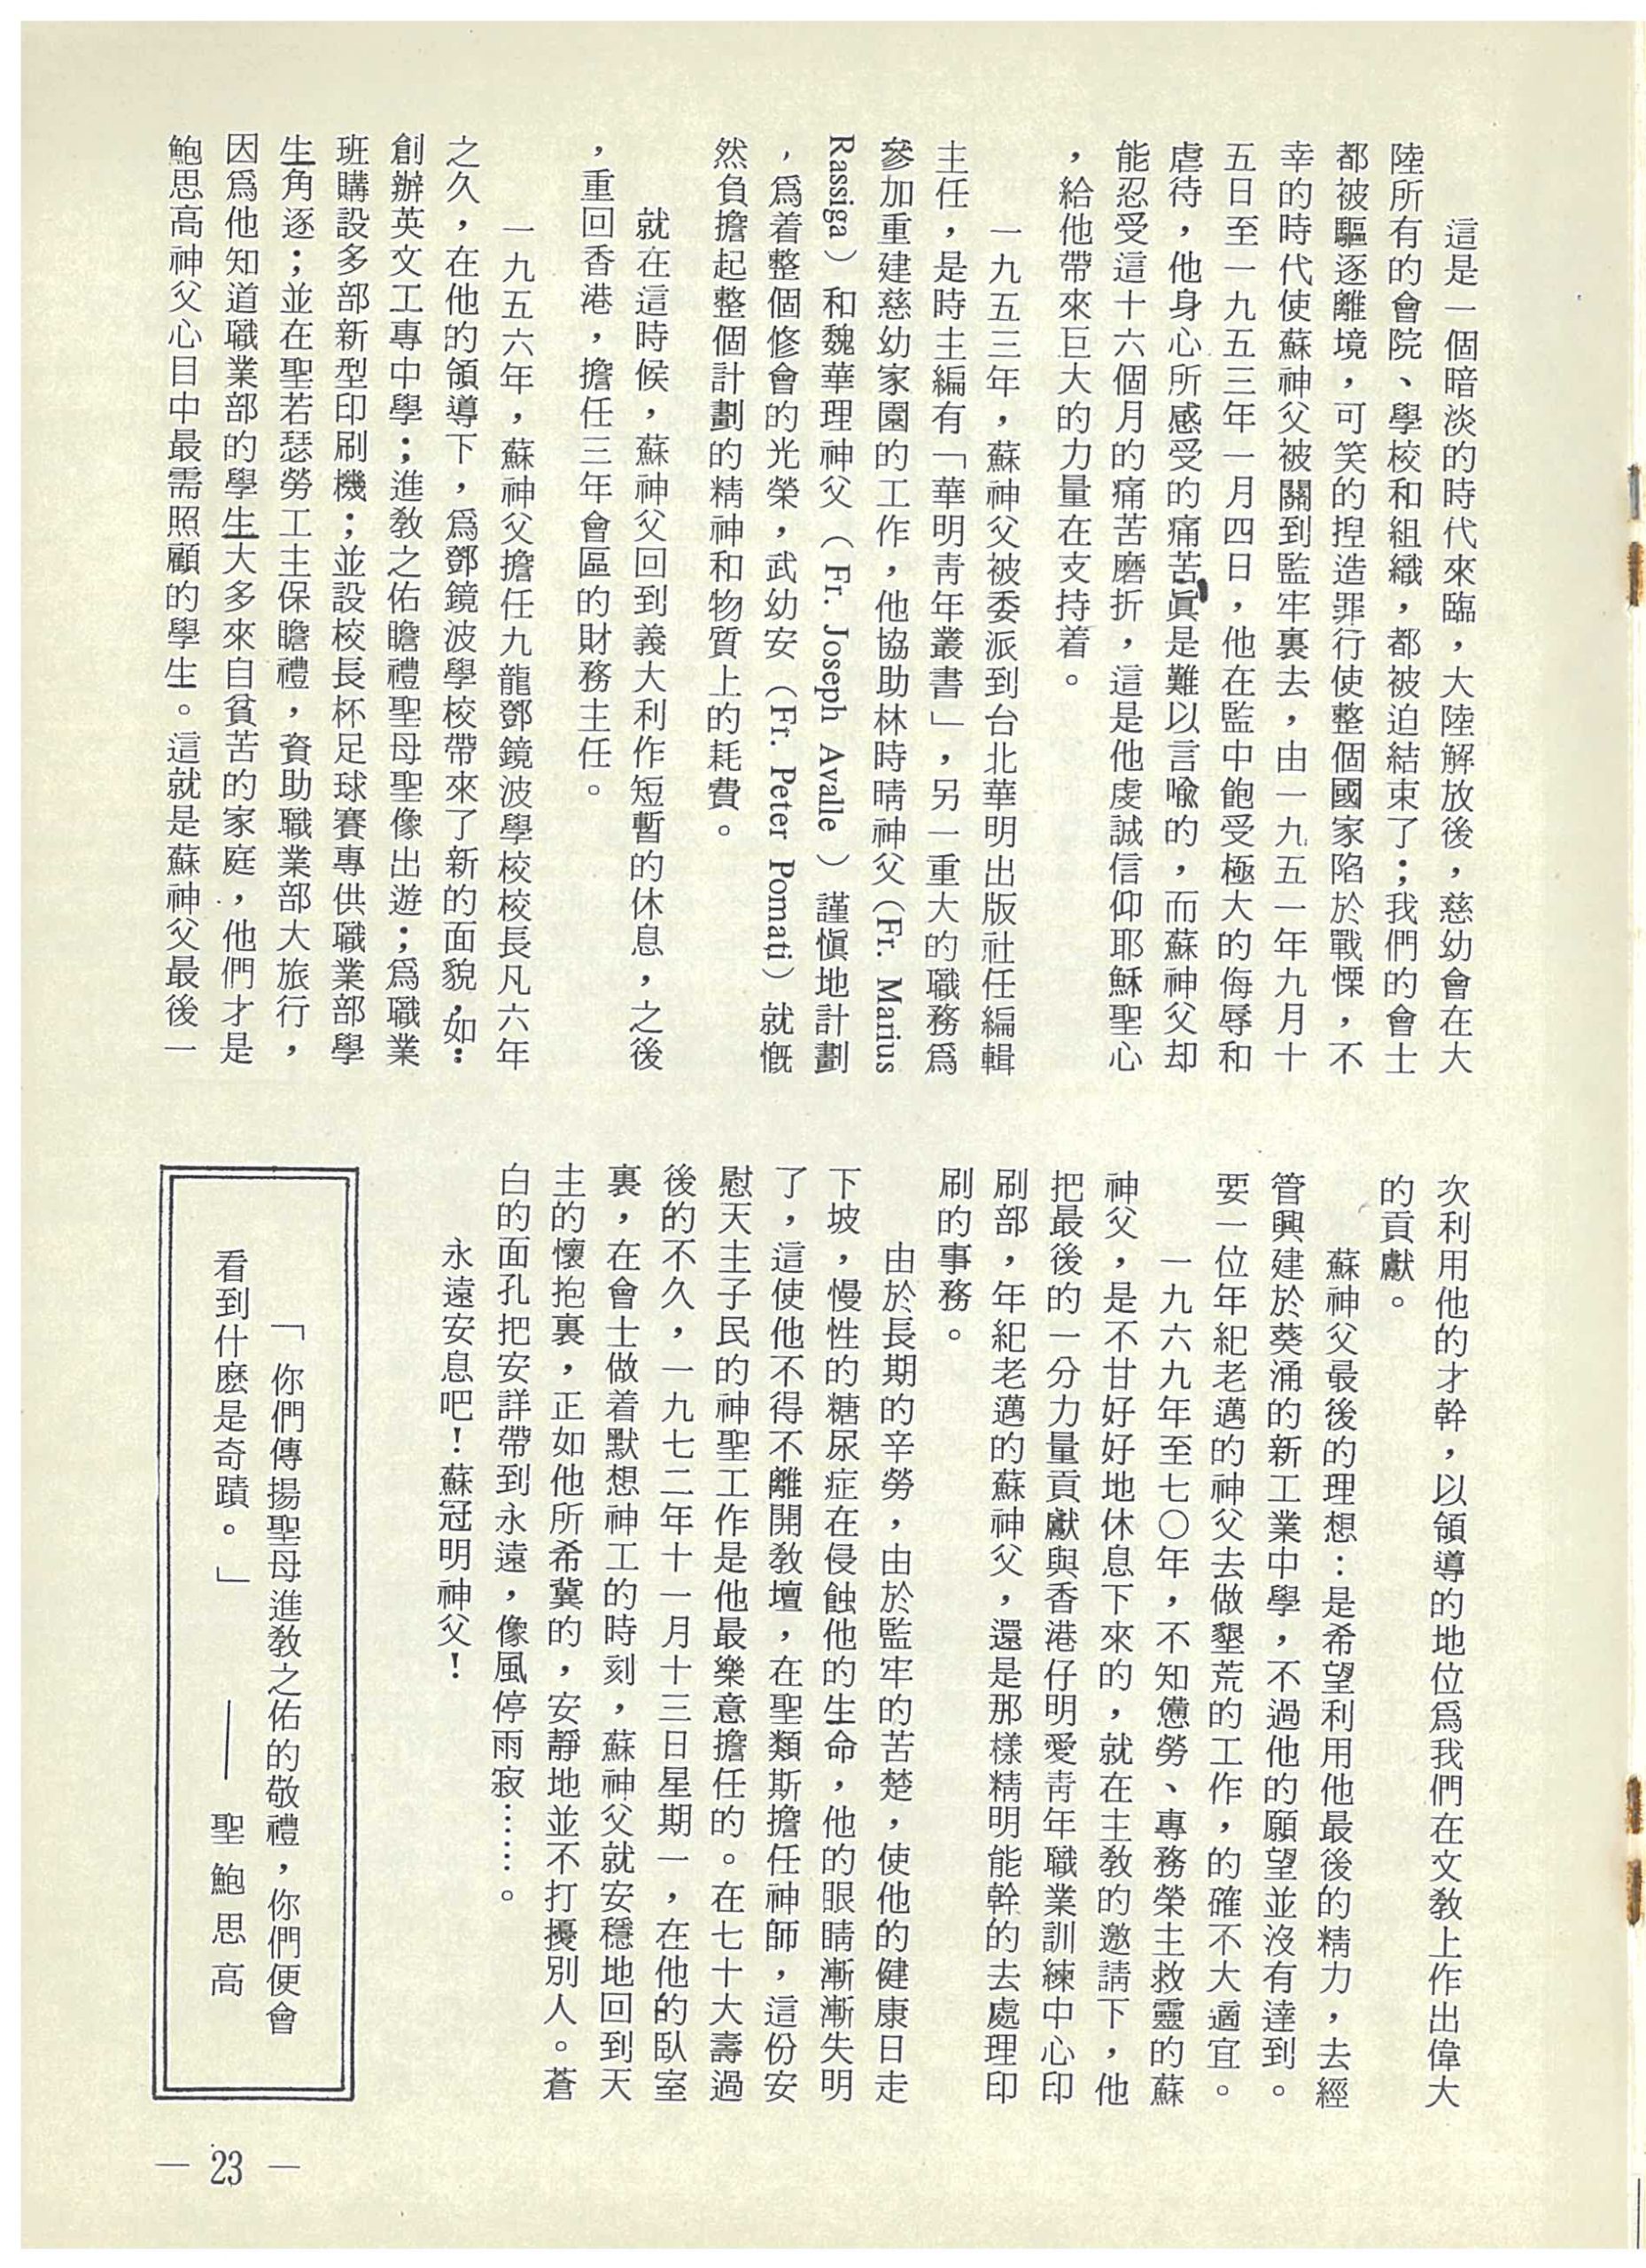 這是一個暗淡的時代來臨，大陸解放後，慈幼會在大
陸所有的會院、學校和組織，都被迫結束了；我們的會士
都被驅逐離境，可笑的揑造罪行使整個國家陷於戰慄，不
幸的時代使蘇神父被關到監牢裏去，由一九五一年九月十
五日至一九五三年一月四日，他在監中飽受極大的侮辱和
虐待，他身心所感受的痛苦眞是難以言喩的，而蘇神父却
能忍受這十六個月的痛苦磨折，這是他虔誠信仰耶穌聖心
，給他帶來巨大的力量在支持着。
一九五三年，蘇神父被委派到台北華明出版社任編輯
主任，是時主編有「華明靑年叢書」，另一重大的職務爲
參加重建慈幼家園的工作，他協助林時晴神父（Fr. Marius
Rassiga）和魏華理神父（Fr. Joseph Avalle）謹愼地計劃
，爲着整個修會的光榮，武幼安（Fr. Peter Pomati）就慨
然負擔起整個計劃的精神和物質上的耗費。
就在這時候，蘇神父回到義大利作短暫的休息，之後
，重回香港，擔任三年會區的財務主任。
一九五六年，蘇神父擔任九龍鄧鏡波學校校長凡六年
之久，在他的領導下，爲鄧鏡波學校帶來了新的面貌，如：
創辦英文工專中學；進敎之佑瞻禮聖母聖像出遊；爲職業
班購設多部新型印刷機；並設校長杯足球賽專供職業部學
生角逐；並在聖若瑟勞工主保瞻禮，資助職業部大旅行，
因爲他知道職業部的學生大多來自貧苦的家庭，他們才是
鮑思高神父心目中最需照顧的學生。這就是蘇神父最後一
次利用他的才幹，以領導的地位爲我們在文敎上作出偉大
的貢獻。
蘇神父最後的理想：是希望利用他最後的精力，去經
管興建於葵涌的新工業中學，不過他的願望並沒有達到。
要一位年紀老邁的神父去做墾荒的工作，的確不大適宜。
一九六九年至七〇年，不知憊勞、專務榮主救靈的蘇
神父，是不甘好好地休息下來的，就在主敎的邀請下，他
把最後的一分力量貢獻與香港仔明愛靑年職業訓練中心印
刷部，年紀老邁的蘇神父，還是那樣精明能幹的去處理印
刷的事務。
由於長期的辛勞，由於監牢的苦楚，使他的健康日走
下坡，慢性的糖尿症在侵蝕他的生命，他的眼睛漸漸失明
了，這使他不得不離開敎壇，在聖類斯擔任神師，這份安
慰天主子民的神聖工作是他最樂意擔任的。在七十大壽過
後的不久，一九七二年十一月十三日星期一，在他的臥室
裏，在會士做着默想神工的時刻，蘇神父就安穩地回到天
主的懷抱裏，正如他所希冀的，安靜地並不打擾別人。蒼
白的面孔把安詳帶到永遠，像風停雨寂……。
永遠安息吧！蘇冠明神父！
「你們傳揚聖母進敎之佑的敬禮，你們便會
看到什麽是奇蹟。」 —— 聖鮑思高
— 23 —